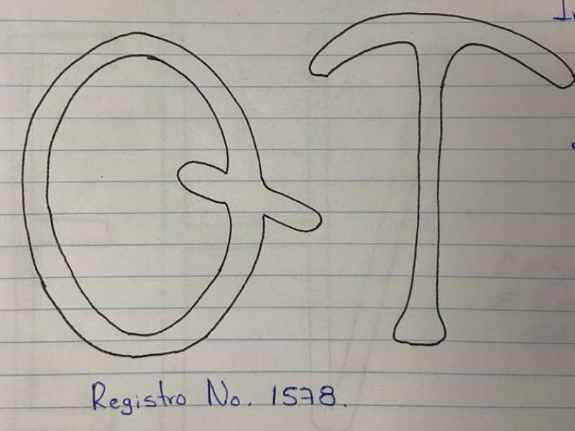 QT
Registro No. 1578.